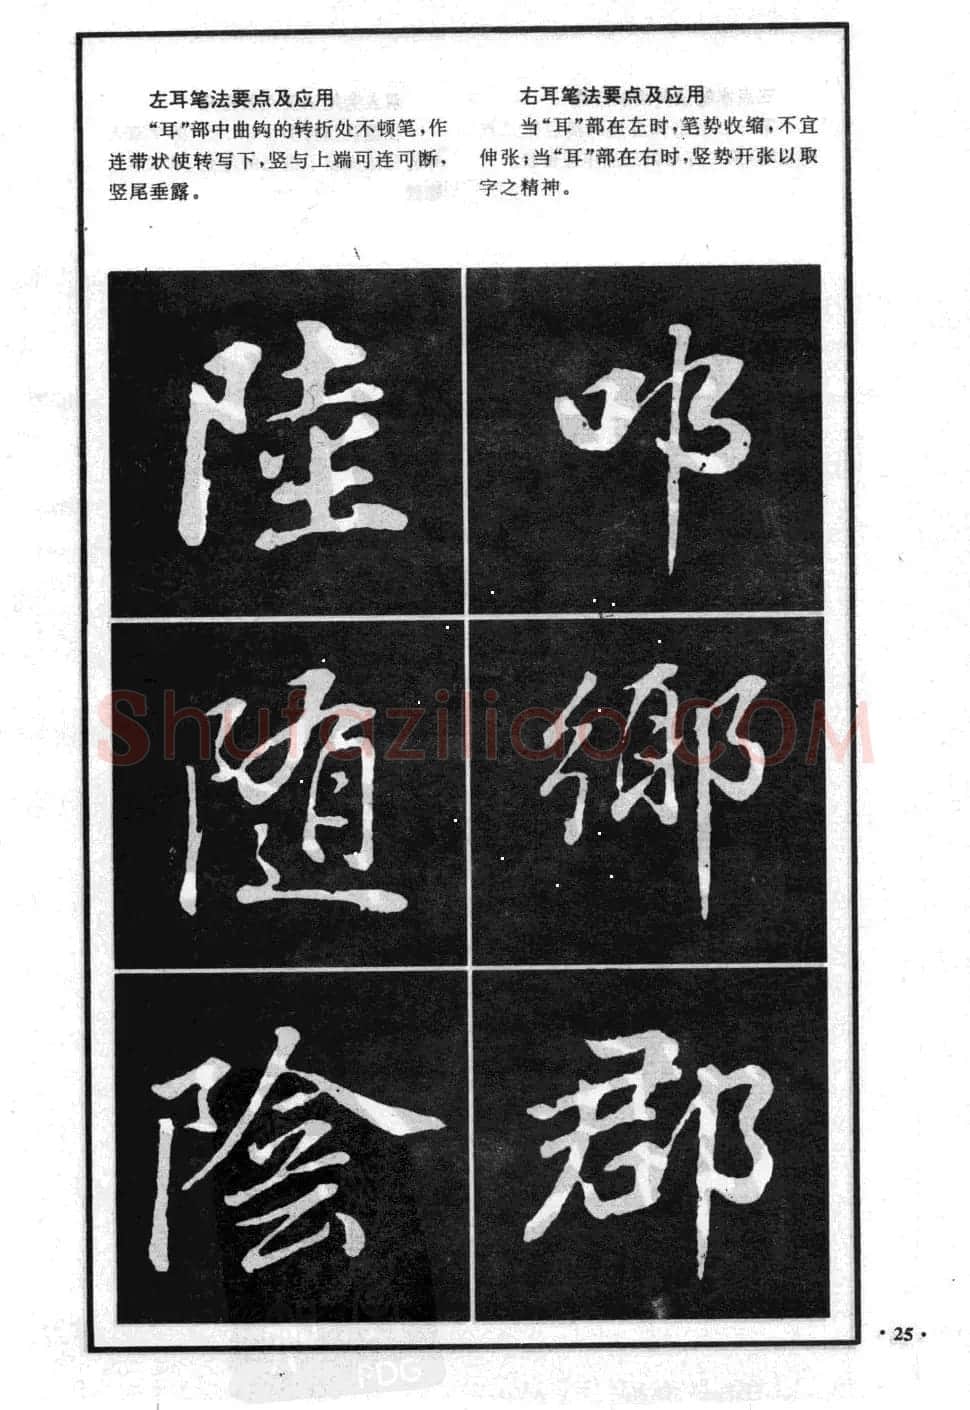 左耳笔法要点及应用
“耳”部中曲钩的转折处不顿笔，作
连带状使转写下，竖与上端可连可断，
竖尾垂露。
右耳笔法要点及应用
当“耳”部在左时，笔势收缩，不宜
伸张；当“耳”部在右时，竖势开张以取
字之精神。
陸
随
陰
叩
鄉
郡
Shufaziliao.COM
·25·
PDG